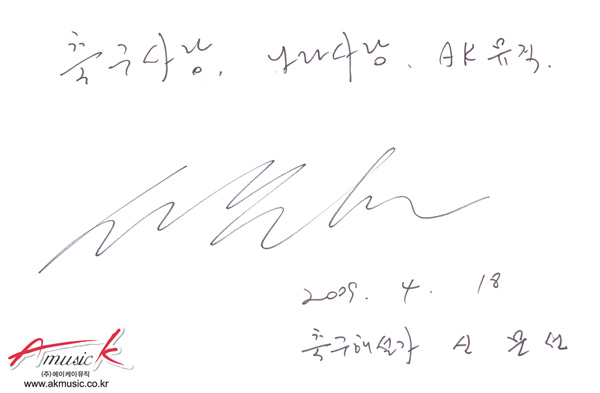 축구사랑. 나라사랑. AK뮤직.
2009. 4. 18
축구해설가 신문선
A music K
(주)에이케이뮤직
www.akmusic.co.kr